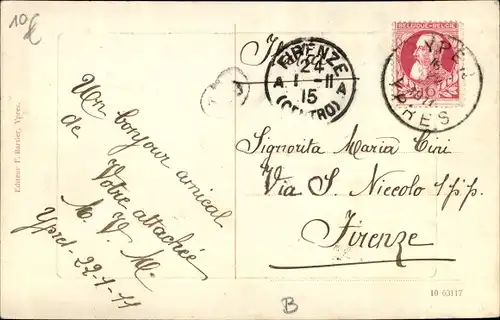 10€
Editeur F. Bartier, Ypres.
Un bonjour amical
de
Votre attachée
M. V. M.
Ypres - 22-1-11
FIRENZE
24
1 - 11
15
A A
(CENTRO)
BELGIQUE-BELGIË
YPER
YPRES
Signorita Maria Cini
Via S. Niccolo 1pp.
Firenze
10 03117
B